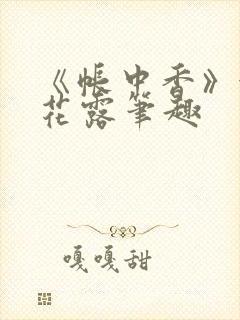 《帐中香》
花露笔趣
嘎嘎甜